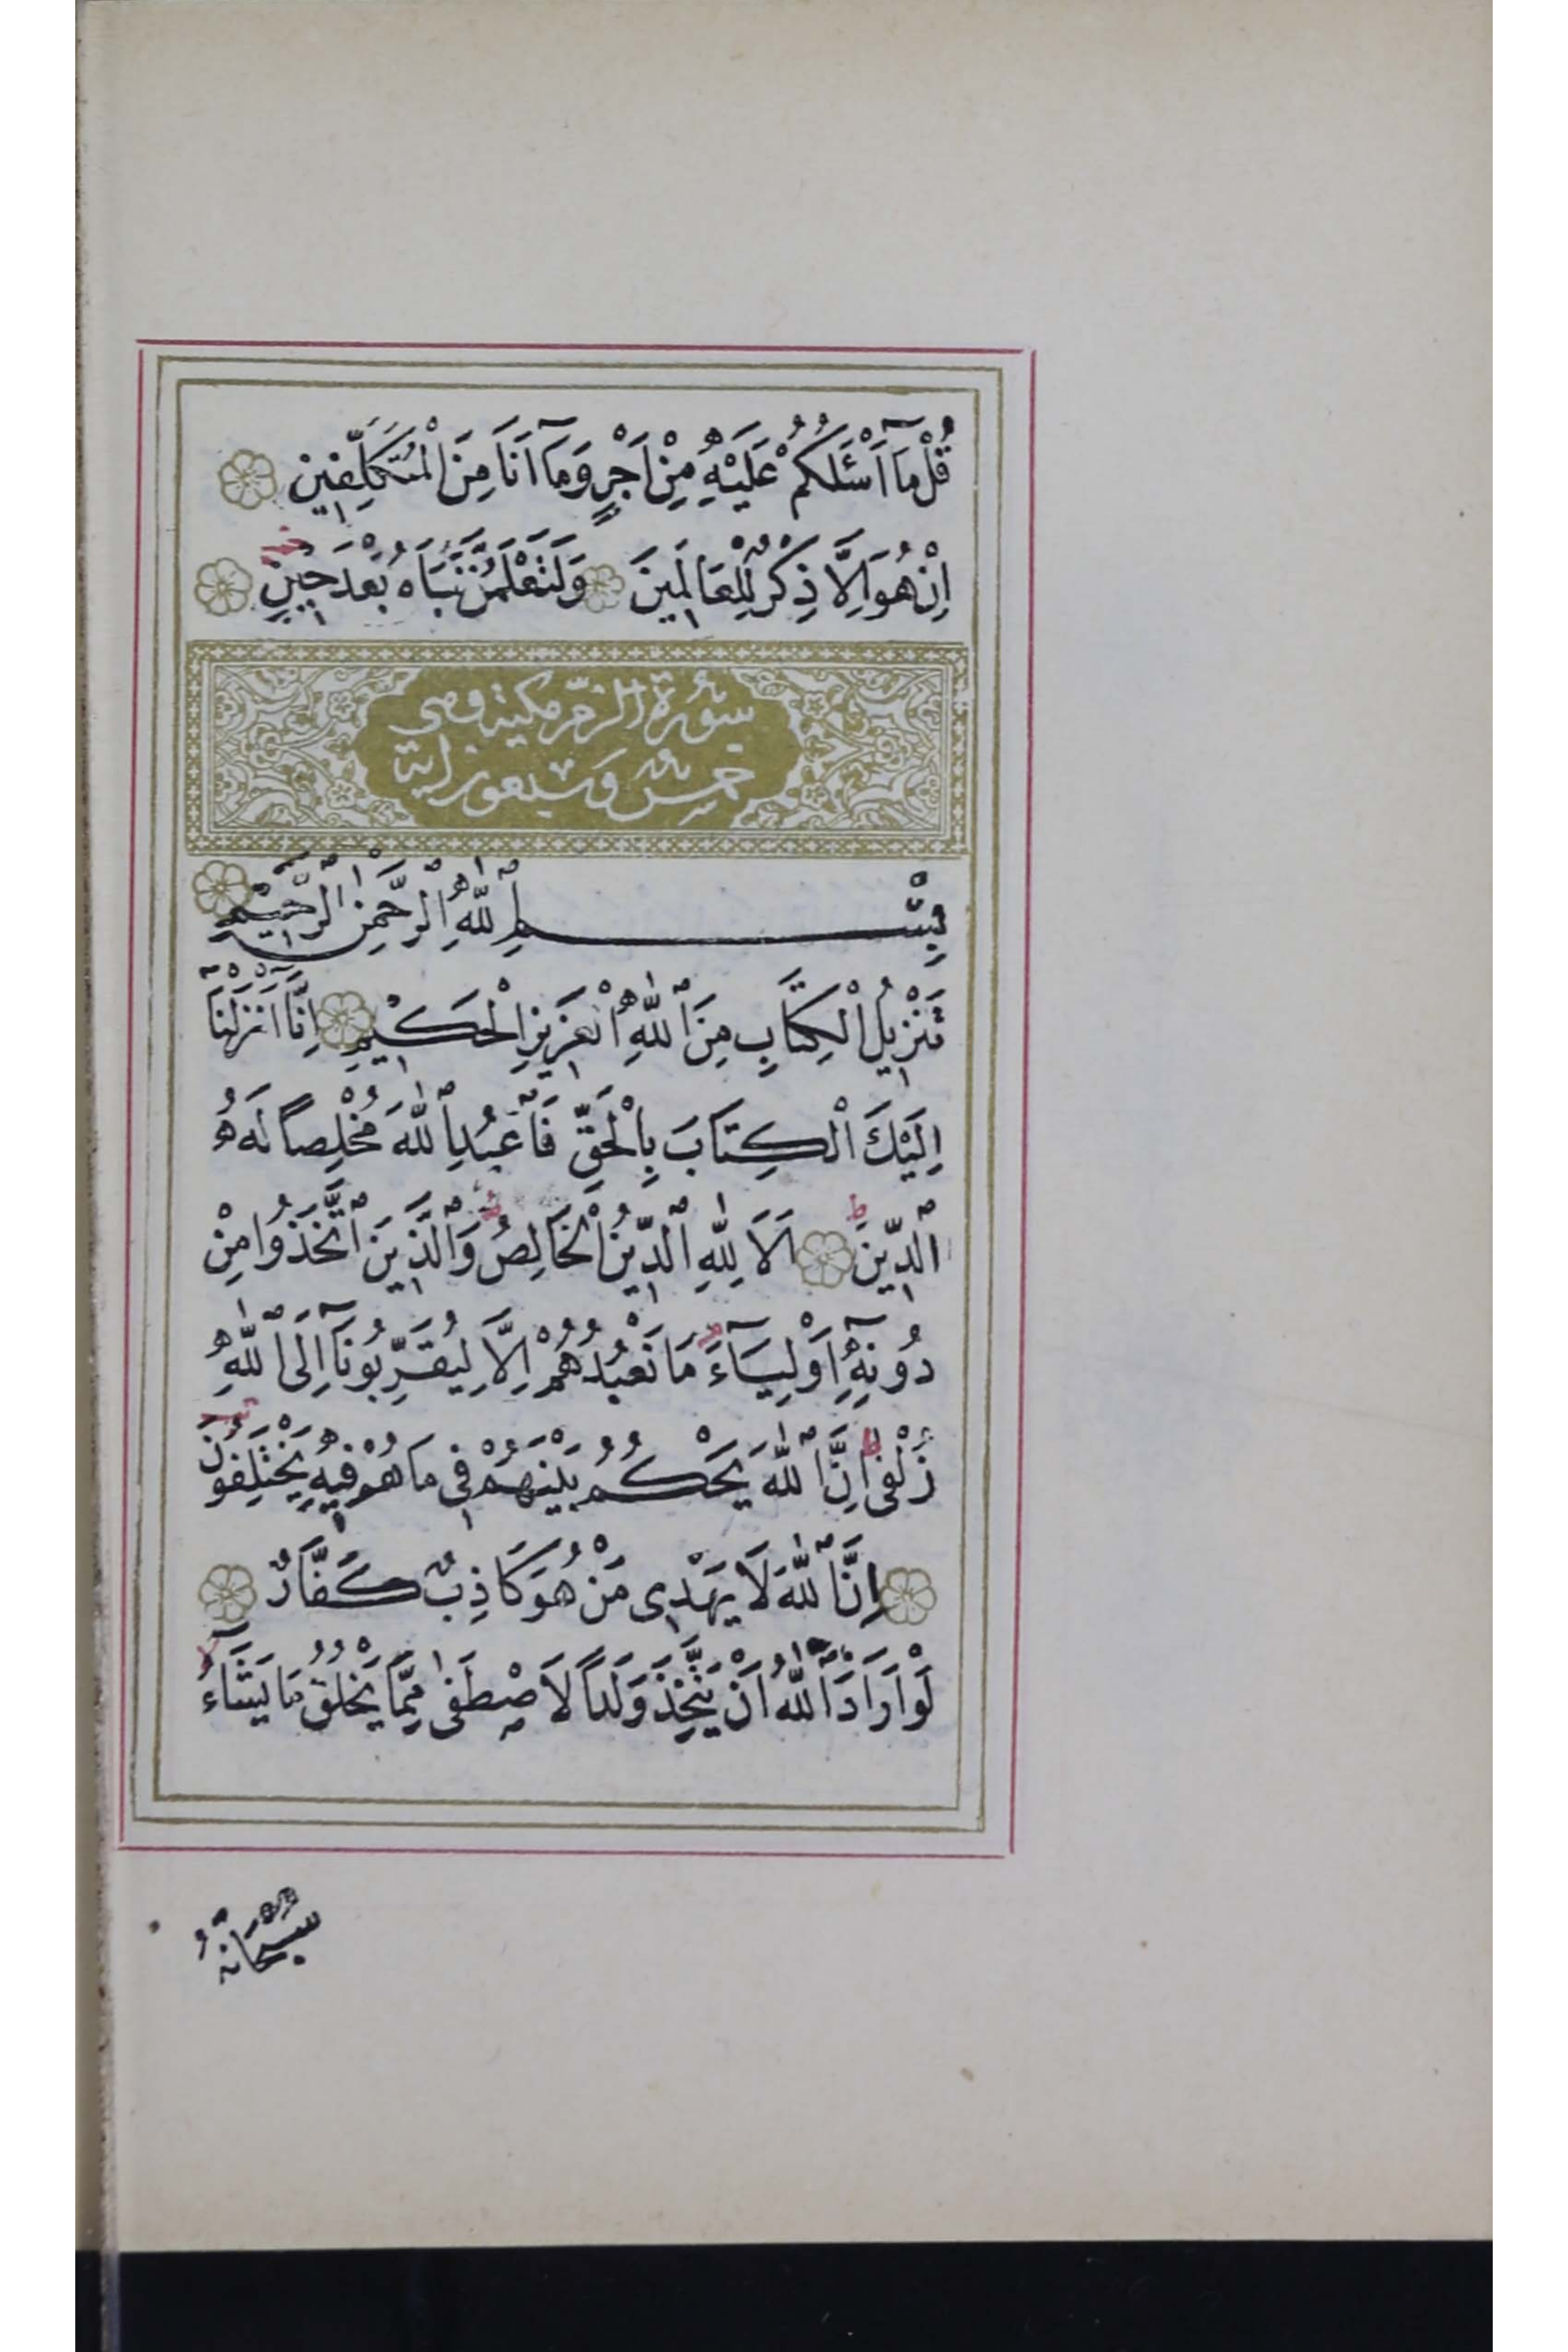 قُلْ مَآ اَسْئَلُكُمْ عَلَيْهِ مِنْ اَجْرٍ وَمَآ اَنَا مِنَ الْمُتَكَلِّفِينَ
اِنْ هُوَ اِلَّا ذِكْرٌ لِلْعَالَمِينَ وَلَتَعْلَمُنَّ نَبَاَهُ بَعْدَ حِينٍ
سورة الزمر مكية وهي
خمس وسبعون اية
بِسْمِ اللّٰهِ الرَّحْمٰنِ الرَّحِيمِ
تَنْزِيلُ الْكِتَابِ مِنَ اللّٰهِ الْعَزِيزِ الْحَكِيمِ اِنَّآ اَنْزَلْنَآ
اِلَيْكَ الْكِتَابَ بِالْحَقِّ فَاعْبُدِ اللّٰهَ مُخْلِصاً لَهُ
الدِّينَ اَلَا لِلّٰهِ الدِّينُ الْخَالِصُ وَالَّذِينَ اتَّخَذُوا مِنْ
دُونِهِٓ اَوْلِيَآءَ مَا نَعْبُدُهُمْ اِلَّا لِيُقَرِّبُونَآ اِلَى اللّٰهِ
زُلْفٰى اِنَّ اللّٰهَ يَحْكُمُ بَيْنَهُمْ فِي مَا هُمْ فِيهِ يَخْتَلِفُونَ
اِنَّ اللّٰهَ لَا يَهْدِي مَنْ هُوَ كَاذِبٌ كَفَّارٌ
لَوْ اَرَادَ اللّٰهُ اَنْ يَتَّخِذَ وَلَداً لَاصْطَفٰى مِمَّا يَخْلُقُ مَا يَشَآءُ
سُبْحَانَهُ